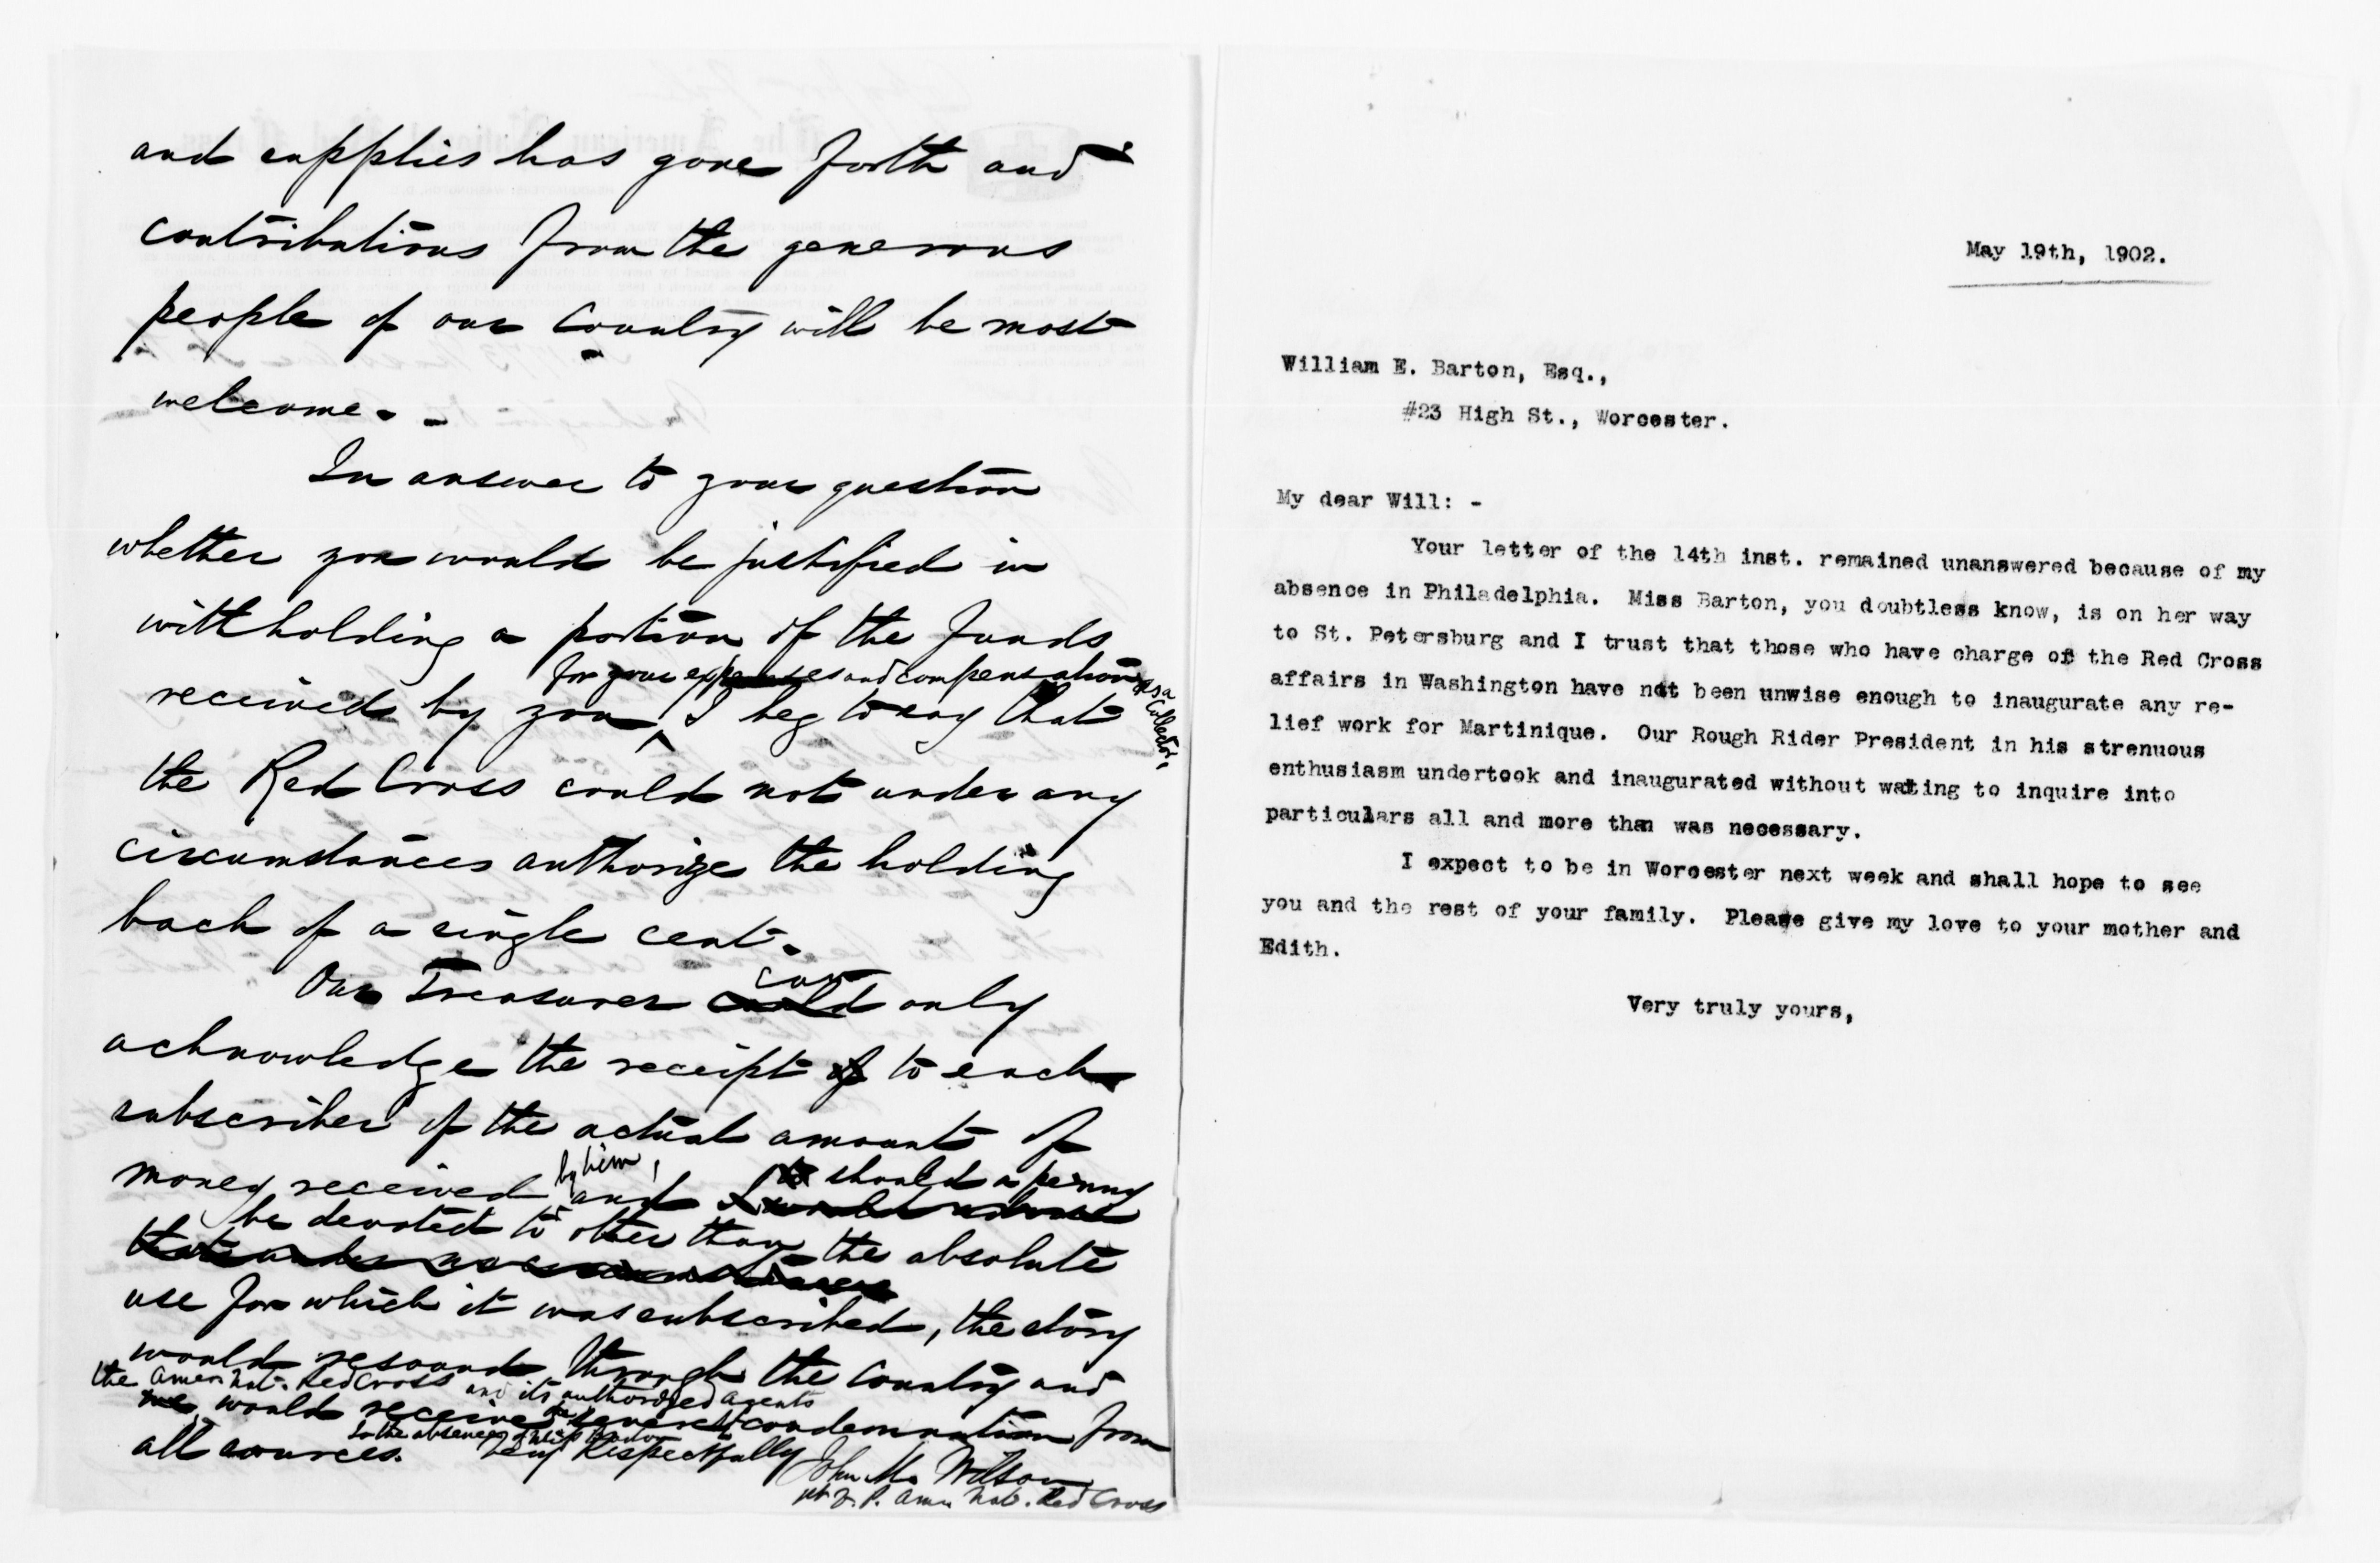 and supplies has gone forth and
contributions from the generous
people of our Country will be most
welcome. -
In answer to your question
whether you would be justified in
withholding a portion of the funds
for your expenses and compensation as a Collector,
received by you, I beg to say that
the Red Cross could not under any
circumstances authorize the holding
back of a single cent.
can
Our Treasurer could only
acknowledge the receipt of to each
subscriber of the actual amount of
by him, should a penny
money received and I would
be devoted to other than the absolute
that under no circumstances
use for which it was subscribed, the story
would resound through the Country and
the Amer. Nat. Red Cross and its authorized agents
we would receive the severest condemnation from
In the absence of Miss Barton
all sources. Very Respectfully
John M. Wilson
1st V. P. Amer. Nat. Red Cross
May 19th, 1902.
William E. Barton, Esq.,
#23 High St., Worcester.
My dear Will: -
Your letter of the 14th inst. remained unanswered because of my
absence in Philadelphia. Miss Barton, you doubtless know, is on her way
to St. Petersburg and I trust that those who have charge of the Red Cross
affairs in Washington have not been unwise enough to inaugurate any re-
lief work for Martinique. Our Rough Rider President in his strenuous
enthusiasm undertook and inaugurated without wating to inquire into
particulars all and more than was necessary.
I expect to be in Worcester next week and shall hope to see
you and the rest of your family. Please give my love to your mother and
Edith.
Very truly yours,